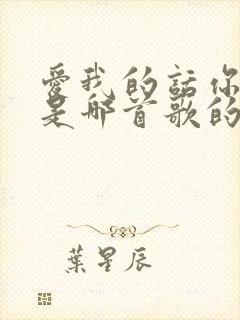 愛我的話你
是哪首歌的
葉星辰